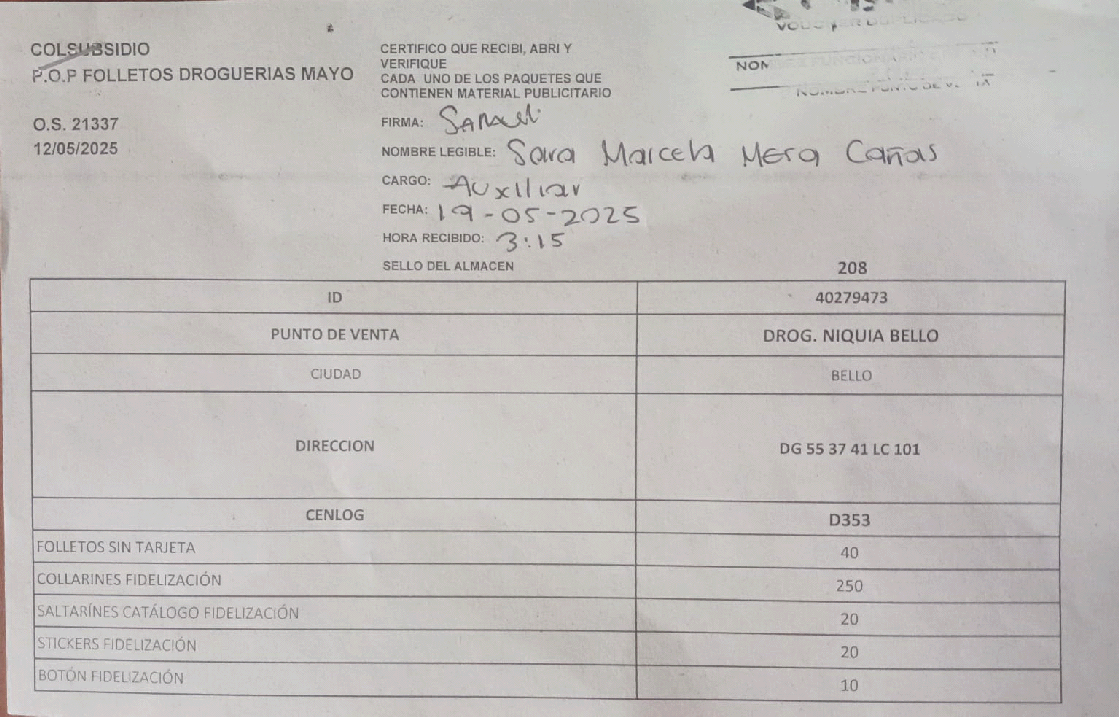 COLSUBSIDIO
P.O.P FOLLETOS DROGUERIAS MAYO
O.S. 21337
12/05/2025
CERTIFICO QUE RECIBI, ABRI Y
VERIFIQUE
CADA UNO DE LOS PAQUETES QUE
CONTIENEN MATERIAL PUBLICITARIO
FIRMA:
NOMBRE LEGIBLE: Sara Marcela Mera Cañas
CARGO: Auxiliar
FECHA: 19-05-2025
HORA RECIBIDO: 3:15
SELLO DEL ALMACEN
208
ID 40279473
PUNTO DE VENTA DROG. NIQUIA BELLO
CIUDAD BELLO
DIRECCION DG 55 37 41 LC 101
CENLOG D353
FOLLETOS SIN TARJETA 40
COLLARINES FIDELIZACIÓN 250
SALTARÍNES CATÁLOGO FIDELIZACIÓN 20
STICKERS FIDELIZACIÓN 20
BOTÓN FIDELIZACIÓN 10